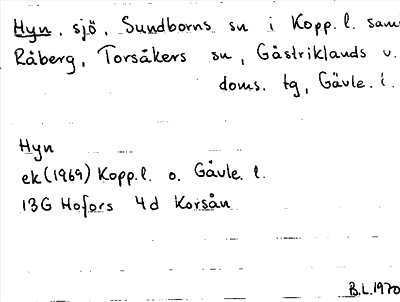 Hyn, sjö, Sundborns sn i Kopp. l. sam
Råberg, Torsåkers sn, Gästriklands v.
doms. tg, Gävle. l.
Hyn
ek (1969) Kopp. l. o. Gävle. l.
13G Hofors 4d Korsån
B.L. 1970